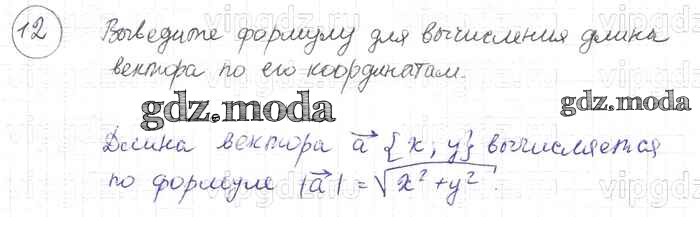 12 Выведите формулу для вычисления длины
вектора по его координатам.
gdz.moda
gdz.moda
Длина вектора a⃗ {x, y} вычисляется
по формуле |a⃗| = √x² + y².